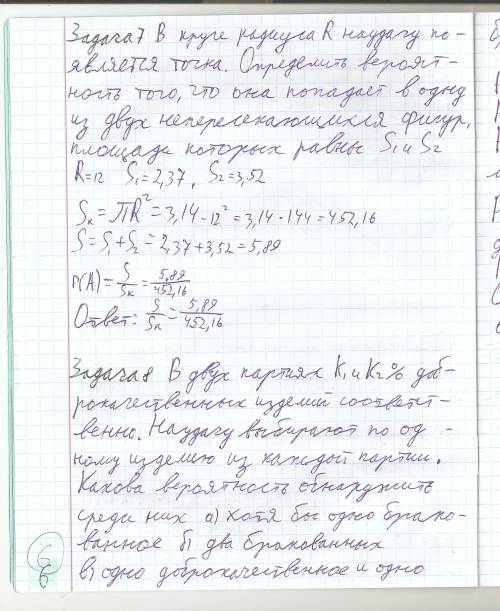 Задача 7 В круге радиуса R наудачу по-
является точка. Определить вероят-
ность того, что она попадает в одну
из двух непересекающихся фигур,
площади которых равны S₁ и S₂
R=12 S₁=2,37, S₂=3,52
Sк=ПR²=3,14-12²=3,14·144=452,16
S=S₁+S₂=2,37+3,52=5,89
р(А)=S/Sк=5,89/452,16
Ответ: S/Sк=5,89/452,16
Задача 8 В двух партиях К₁ и К₂% доб-
рокачественных изделий соответст-
венно. Наудачу выбирают по од -
ному изделию из каждой партии.
Какова вероятность обнаружить
среди них а) хотя бы одно брако-
ванное б) два бракованных
в) одно доброкачественное и одно